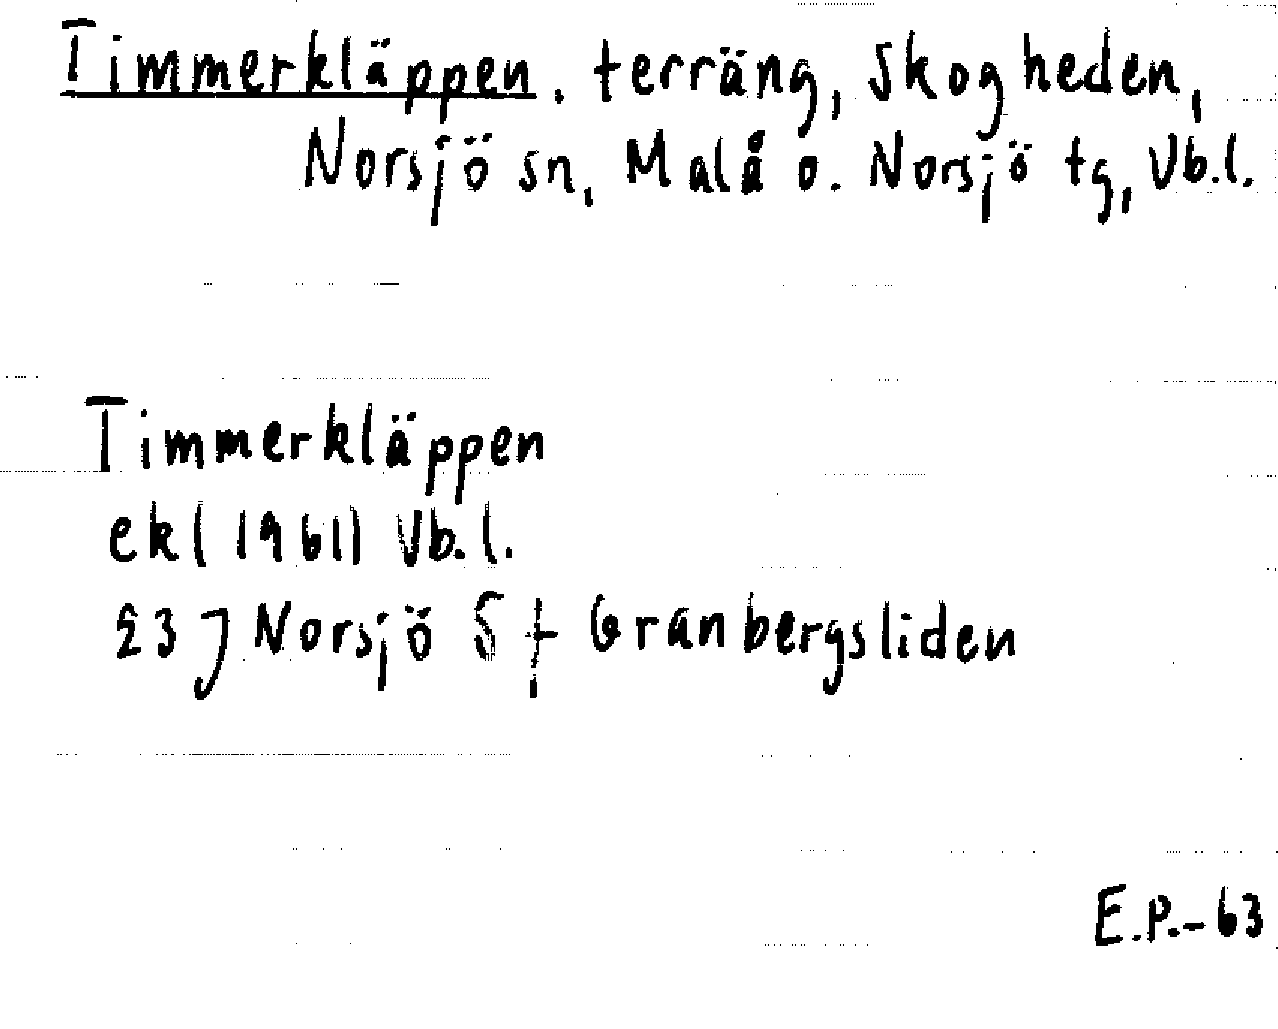 Timmerkläppen. terräng, Skogheden,
Norsjö sn, Malå o. Norsjö tg, Vb.l.
Timmerkläppen
ek (1961) Vb.l.
23 J Norsjö S f Granbergsliden
E.P.-63